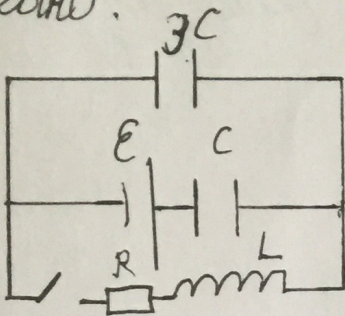 3C
Ɛ C
R L